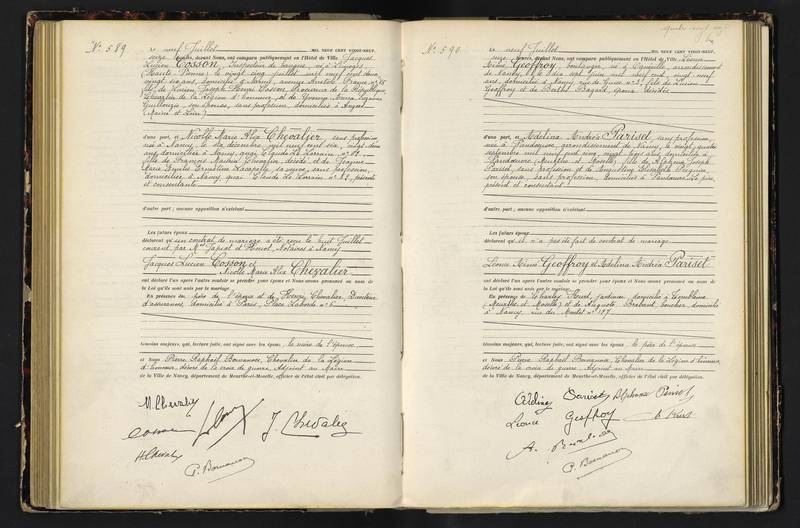 N° 589
Le neuf Juillet MIL NEUF CENT VINGT-NEUF,
heures, devant Nous, ont comparu publiquement en l'Hôtel de Ville Jacques
Lucien Cosson, Inspecteur de banque, né à Limoges
Haute Vienne, le vingt cinq juillet mil neuf cent deux
fils de Lucien Joseph Henri Cosson, Procureur de la République
Chevalier de la Légion d'honneur, et de Yvonne Marie
son épouse, sans profession, domiciliés à Angers
(Maine et Loire)
d'une part, et Nicolle Marie Alix Chevalier, sans profession
née à Nancy, le dix décembre mil neuf cent six, vingt deux
ans, domiciliée à Nancy, quai Claude Le Lorrain n° 82
fille de François Chevalier, décédé, et de Jeanne
Marie Emilie Ernestine sa veuve, sans profession,
domiciliée à Nancy quai Claude Le Lorrain n° 82, présente
et consentante
d'autre part ; aucune opposition n'existant
Les futurs époux
déclarent qu'un contrat de mariage a été reçu le huit Juillet
courant par Notaires à Nancy
Jacques Lucien Cosson et
Nicolle Marie Alix Chevalier
ont déclaré l'un après l'autre vouloir se prendre pour époux et Nous avons prononcé au nom de
la Loi qu'ils sont unis par le mariage.
En présence de père de l'époux et de Henri Chevalier, Directeur
d'assurances, domicilié à Paris, Place Laborde n° 6
témoins majeurs, qui, lecture faite, ont signé avec les époux, la mère de l'épouse
et Nous Pierre Raphaël Chevalier de la Légion
d'honneur, décoré de la croix de guerre, Adjoint au Maire
de la Ville de Nancy, département de Meurthe-et-Moselle, officier de l'état civil par délégation.
M. Chevalier
Cosson
J. Chevalier
H. Chevalier
N° 590
Le neuf Juillet MIL NEUF CENT VINGT-NEUF,
heures, devant Nous, ont comparu publiquement en l'Hôtel de Ville Léonce
Geoffroy, boulanger, né à arrondissement
de Nancy, le dix sept Juin mil neuf cent, vingt neuf
ans, domicilié à Nancy, rue de Guise n° 3, fils de Lucien
Geoffroy et de Berthe époux décédés
d'une part, et Adelina Andréa Pariset, sans profession,
née à Vandoeuvre, arrondissement de Nancy, le vingt quatre
septembre mil neuf cent cinq, vingt trois ans, domiciliée à
Vandoeuvre, Meurthe et Moselle, fille de Alphonse Joseph
Pariset, sans profession et de Elisabeth
son épouse, sans profession, domiciliés à Vandoeuvre, le père,
présent et consentant
d'autre part ; aucune opposition n'existant
Les futurs époux
déclarent qu'il n'a pas été fait de contrat de mariage
Léonce Geoffroy et Adelina Andréa Pariset
ont déclaré l'un après l'autre vouloir se prendre pour époux et Nous avons prononcé au nom de
la Loi qu'ils sont unis par le mariage.
En présence de Charles jardinier, domicilié à Tomblaine
(Meurthe et Moselle) et de Auguste boucher, domicilié
à Nancy, rue du n° 127
témoins majeurs, qui, lecture faite, ont signé avec les époux, le père de l'épouse
et Nous Pierre Raphaël Chevalier de la Légion d'honneur,
décoré de la croix de guerre, Adjoint au Maire
de la Ville de Nancy, département de Meurthe-et-Moselle, officier de l'état civil par délégation.
Pariset Alphonse Pariset
Léonce Geoffroy